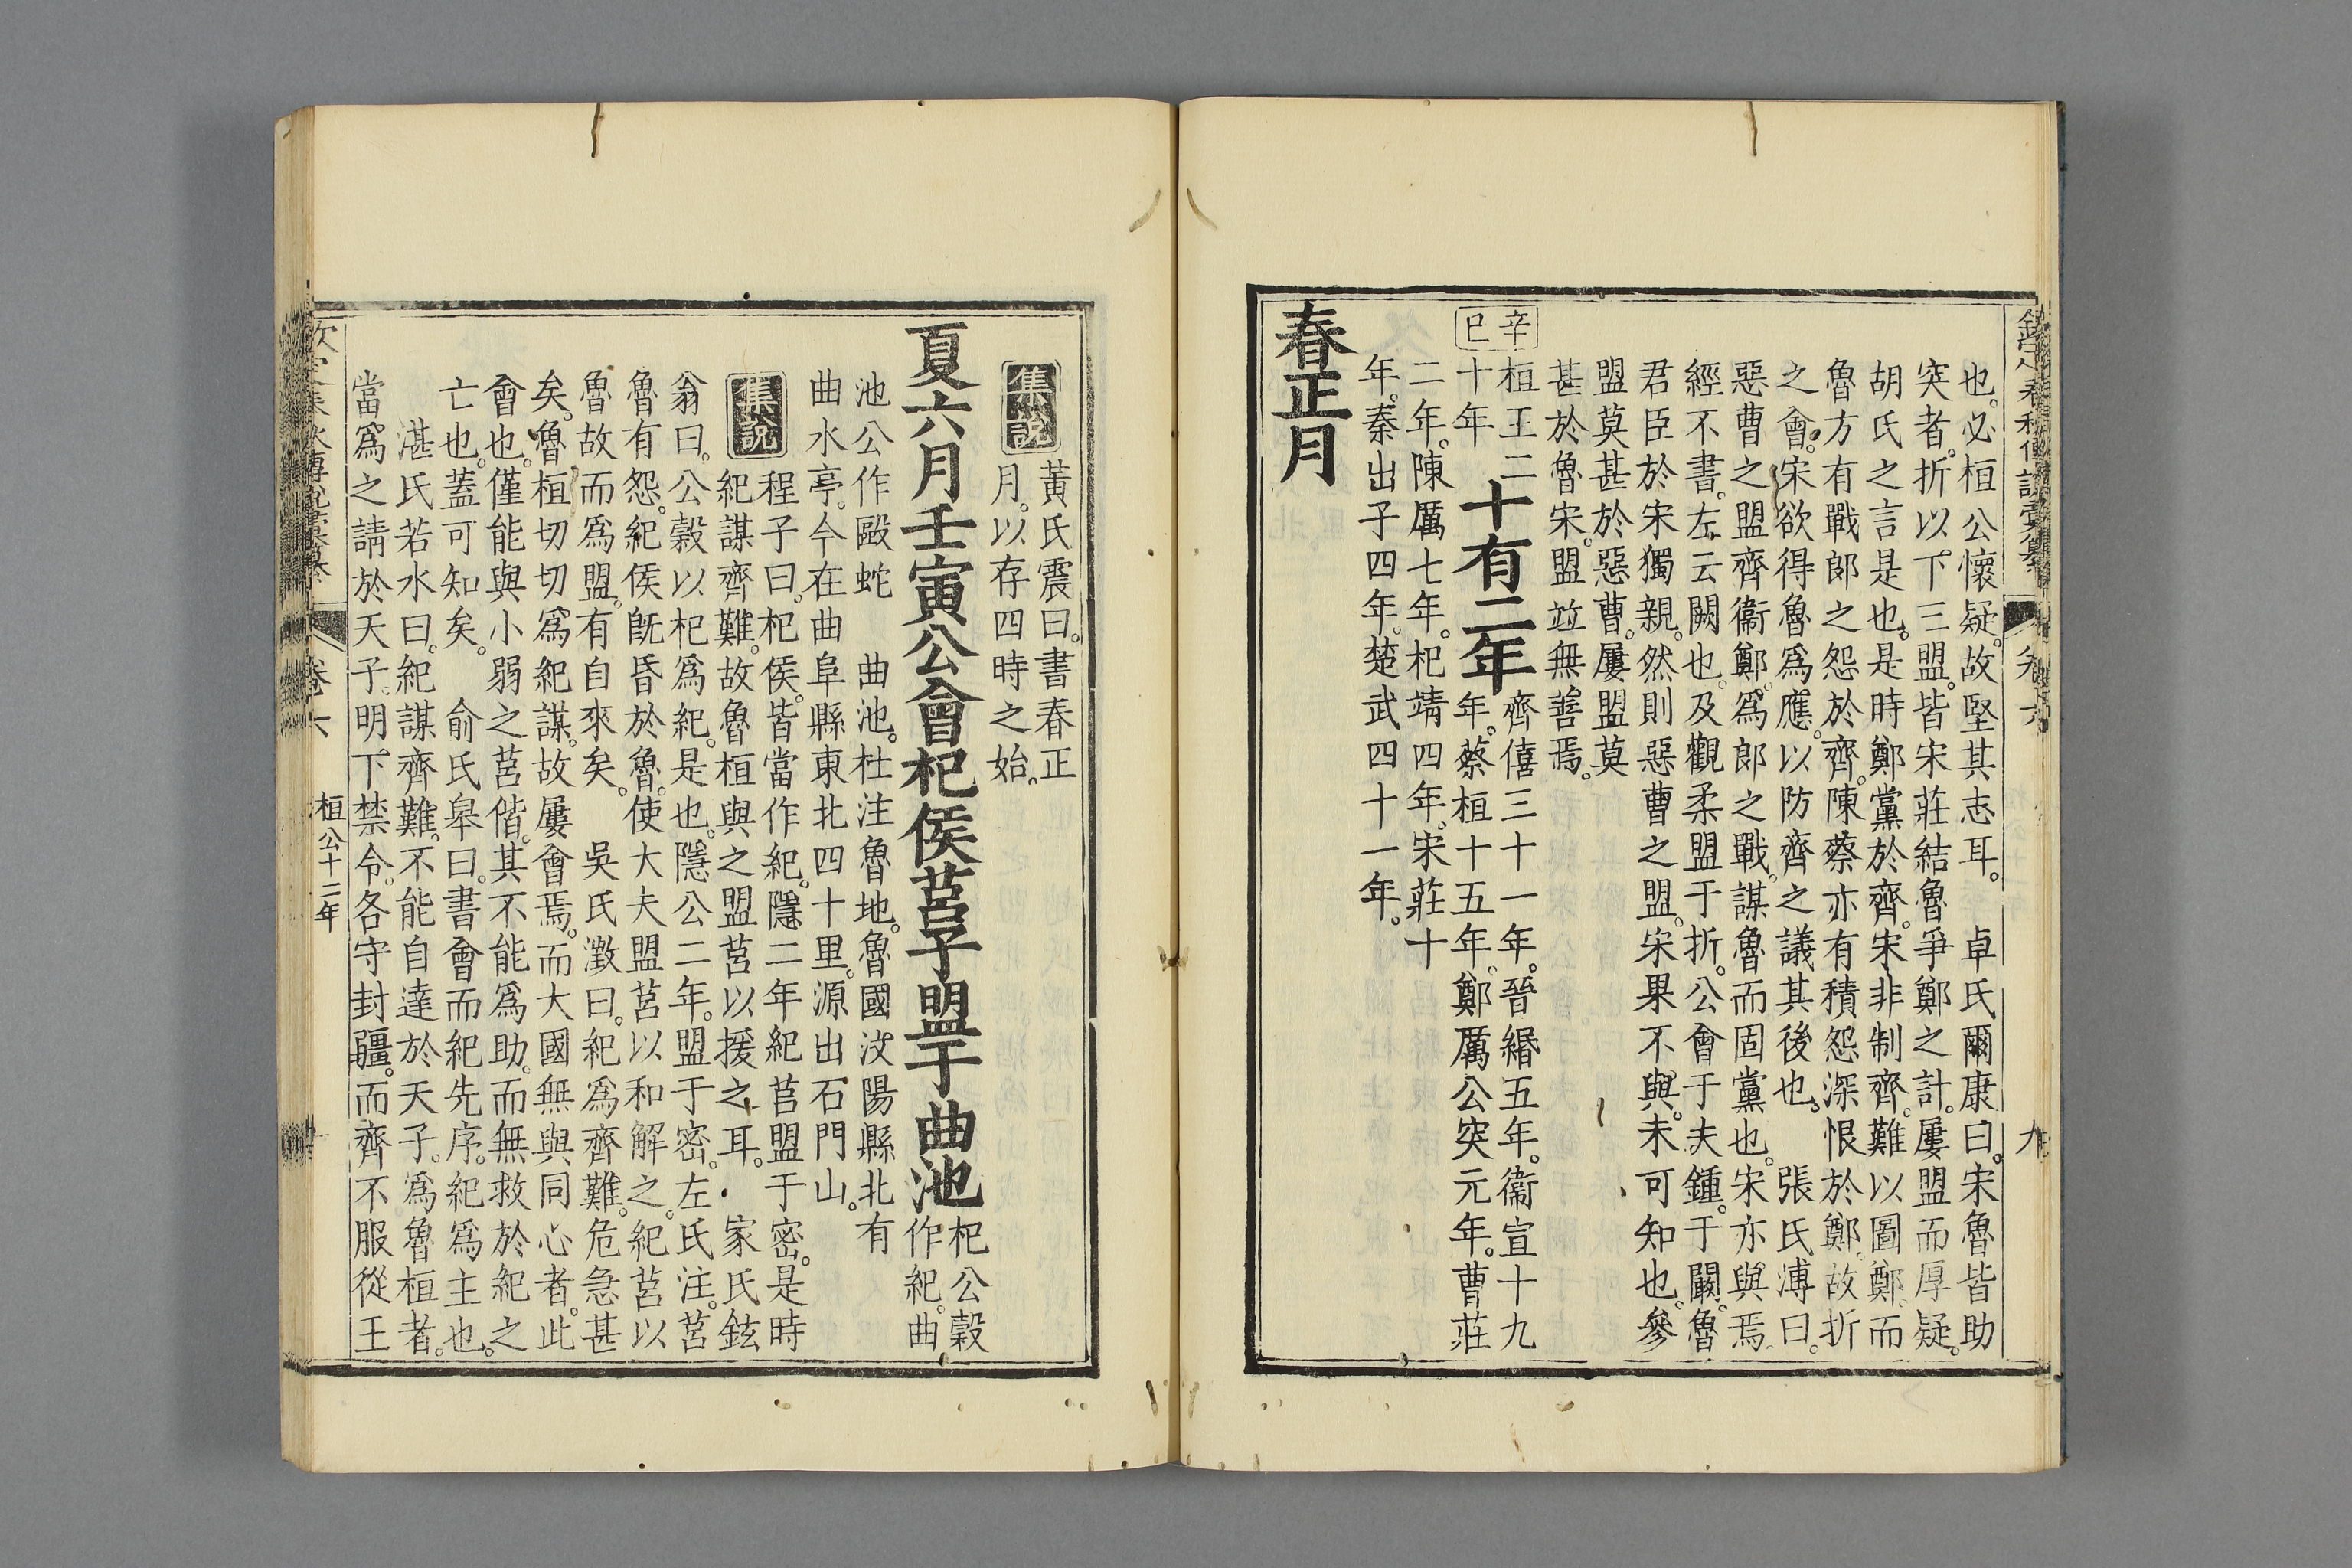 也。必桓公懷疑。故堅其志耳。　卓氏爾康曰。宋魯皆助
突者。折以下三盟。皆宋莊結魯爭鄭之計。屢盟而厚疑。
胡氏之言是也。是時鄭黨於齊。宋非制齊。難以圖鄭。而
魯方有戰郎之怨於齊。陳蔡亦有積怨深恨於鄭。故折
之會。宋欲得魯爲應。以防齊之議其後也。　張氏溥曰。
惡曹之盟。齊衞鄭。爲郎之戰。謀魯而固黨也。宋亦與焉。
經不書。左云闕也。及觀柔盟于折。公會于夫鍾。于闞。魯
君臣於宋獨親。然則惡曹之盟。宋果不與。未可知也。參
盟莫甚於惡曹。屢盟莫
甚於魯宋。盟竝無善焉。
辛巳
桓王二十年
十有二年
齊僖三十一年。晉緡五年。衞宣十九
年。蔡桓十五年。鄭厲公突元年。曹莊
二年。陳厲七年。杞靖四年。宋莊十
年。秦出子四年。楚武四十一年。
春正月
集說
黃氏震曰。書春正
月。以存四時之始。
夏六月壬寅公會杞侯莒子盟于曲池
杞公穀
作紀。曲
池公作毆蛇　曲池。杜注魯地。魯國汶陽縣北有
曲水亭。今在曲阜縣東北四十里。源出石門山。
集說
程子曰。杞侯。皆當作紀。隱二年紀莒盟于密。是時
紀謀齊難。故魯桓與之盟莒以援之耳。　家氏鉉
翁曰。公穀以杞爲紀。是也。隱公二年。盟于密。左氏注。莒
魯有怨。紀侯旣昏於魯。使大夫盟莒以和解之。紀莒以
魯故而爲盟。有自來矣。　吳氏澂曰。紀爲齊難。危急甚
矣。魯桓切切爲紀謀。故屢會焉。而大國無與同心者。此
會也。僅能與小弱之莒偕。其不能爲助。而無救於紀之
亡也。蓋可知矣。　俞氏皋曰。書會而紀先序。紀爲主也。
湛氏若水曰。紀謀齊難。不能自達於天子。爲魯桓者。
當爲之請於天子。明下禁令。各守封疆。而齊不服從王
卷六
桓公十二年